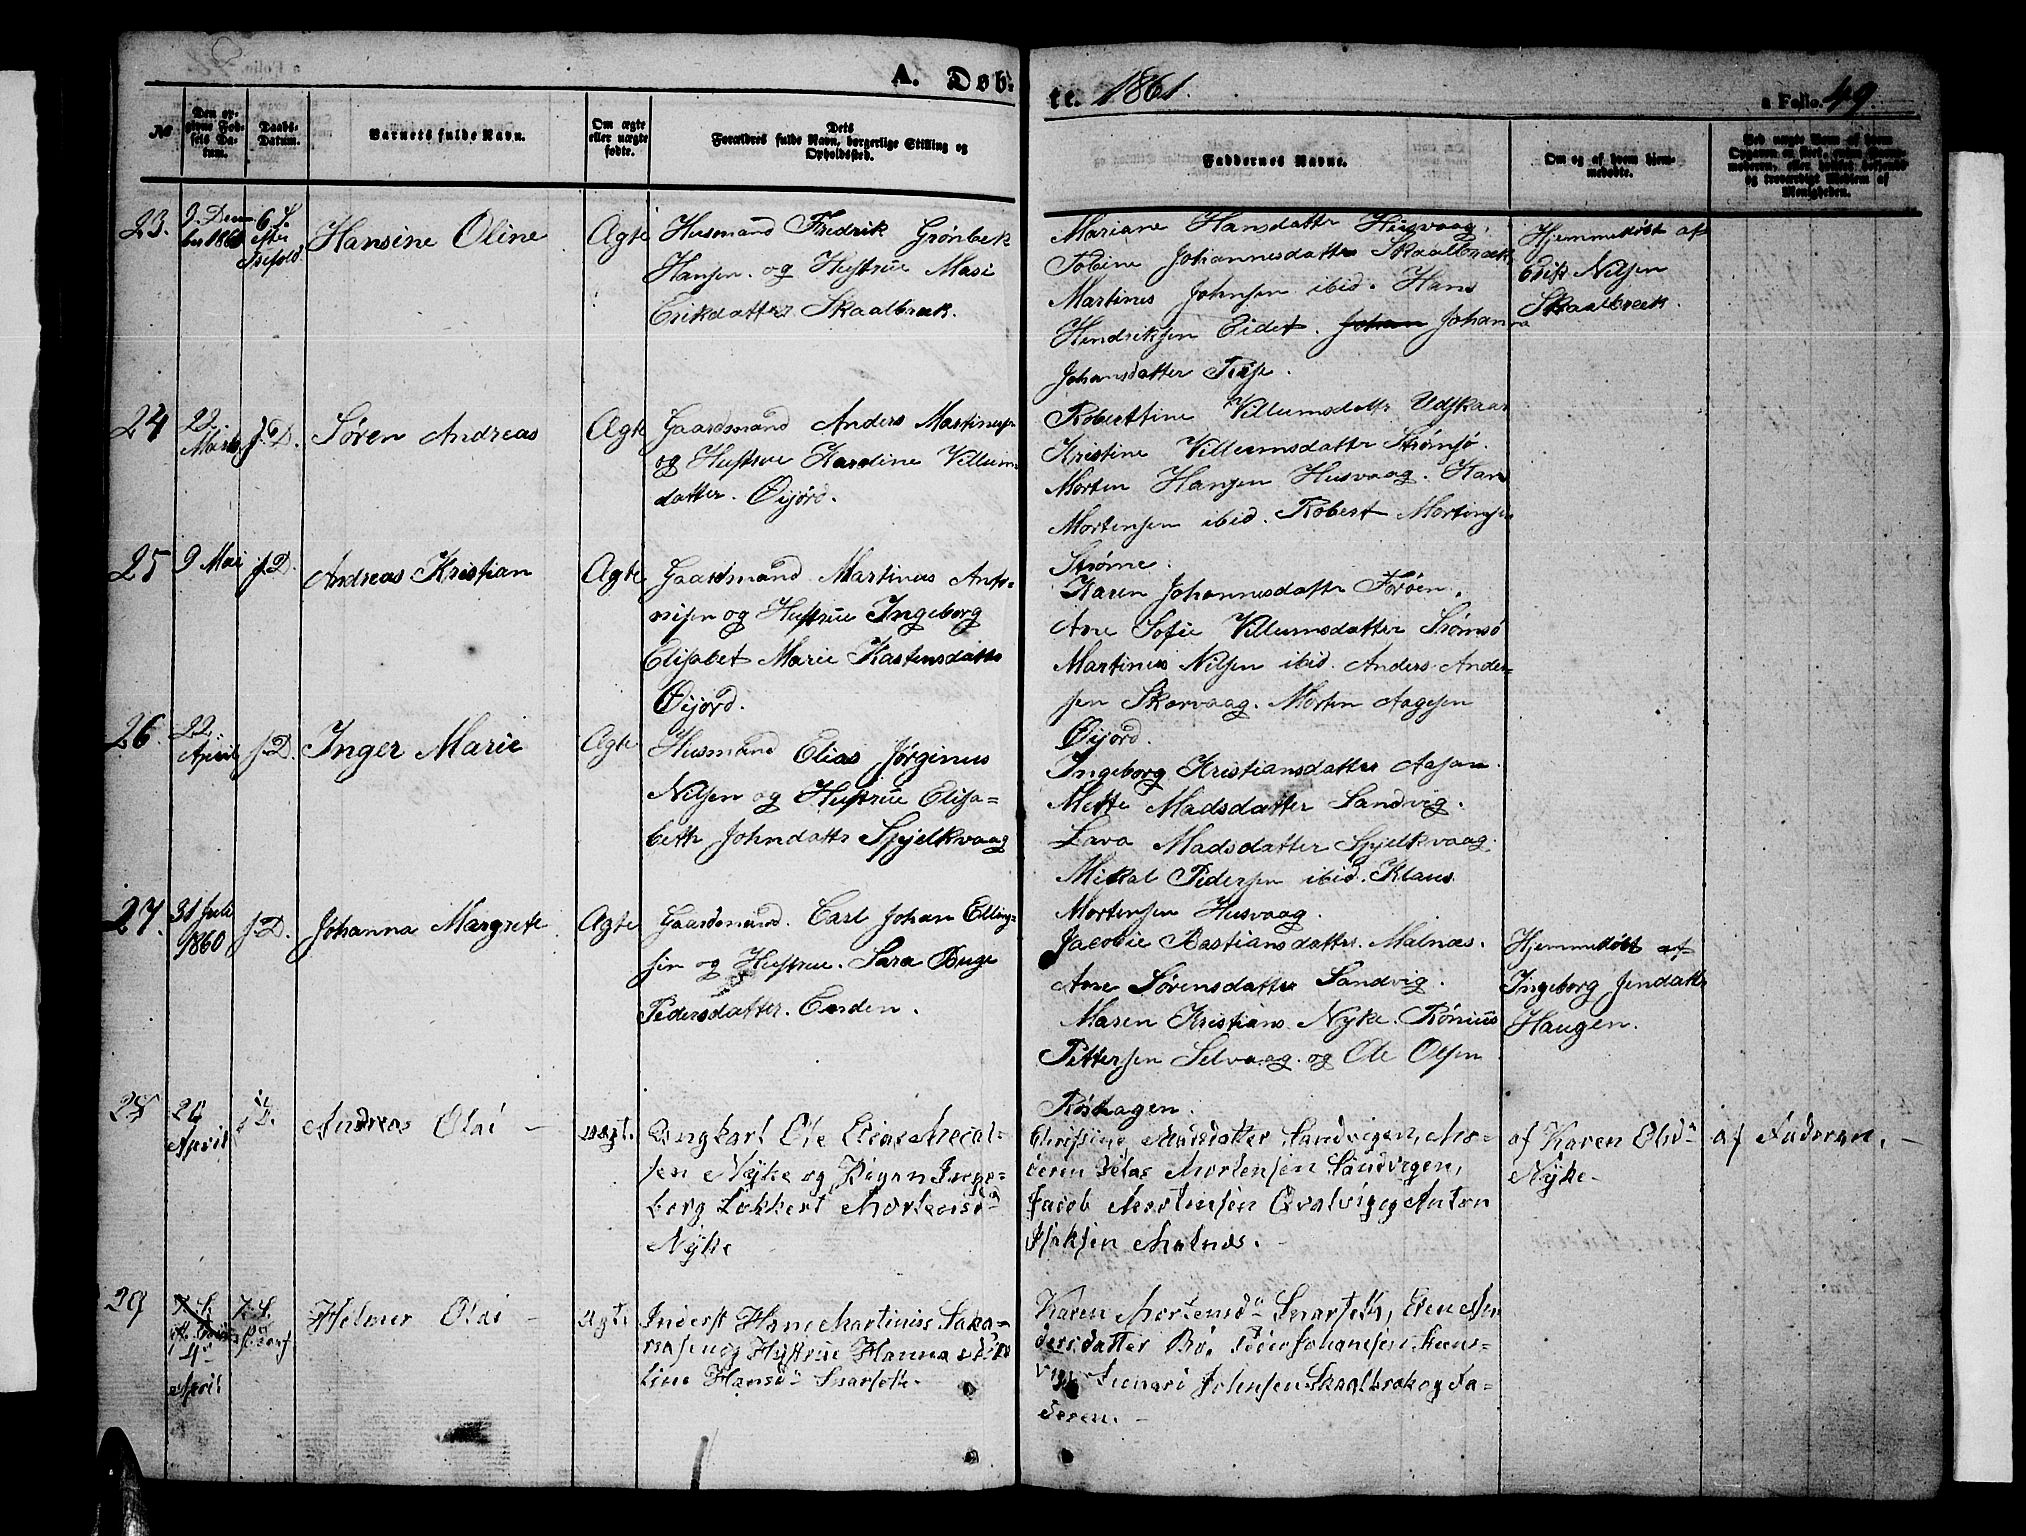 A. Døb-
te. 1861.
a Folio. 49
No
Den ex-
Daabs-
Datum.
Barnets fulde Navn.
Om ægte
eller uægte
fødte.
Dets
Forældres fulde Navn, borgerlige Stilling og
Opholdssted.
Faddernes Navne.
Om og af hvem hjem-
medøbte.
23.
6 S.
efter
Hansine Oline
Ægte
Husmand Fredrik Grønbek
Hansen. og Hustrue Masi
Erikdatter Skaalbræk.
Mariane Hansdatter Husvaag.
Johannesdatter Skaalbræk
Martinus Johnsen ibid. Hans
Hendriksen Eidet. Johan Johanna
Johansdatter
Hjemmedøbt af
Erik Nilsen
Skaalbræk.
24
22.
Marts
f. D.
Søren Andreas
Ægte
Gaardmand Anders Martinusen
og Hustrue Karoline Villum-
datter. Øijord.
Roberttine Villumsdatter
Kristine Villumsdatter Strømsø.
Morten Hansen Husvaag. Hans
Mortensen ibid. Robert Mortensen
Strømme.
25
9 Mai
f. D.
Andreas Kristian
Ægte
Gaardmand Martinus Anto-
nisen og Hustrue Ingeborg
Elisabet Marie Kastensdatter
Øijord.
Karen Johannesdatter Forøen.
Ane Sofie Villumsdatter Strømsø
Martinus Nilsen ibid. Anders Ander-
sen Skorvaag. Morten Aagesen
Øijord.
26.
22
April
f. D.
Inger Marie
Ægte
Husmand Elias Jørginus
Nilsen og Hustrue Elisa-
beth Johndatter Spjelkvaag
Ingeborg Kristiansdatter Aasan.
Mette Madsdatter Sandvig.
Lava Madsdatter Spjelkvaag.
Mikal Pedersen ibid. Klaus
Mortensen Husvaag.
27.
31 Juli
1860
f. D.
Johanna Margrete
Ægte
Gaardmand. Carl Johan Elling-
sen og Hustrue. Sara Buge
Pedersdatter. Enden.
Jacobie Bastiansdatter. Malnæs.
Ane Sørensdatter Sandvig.
Maren Kristians. Nyke. Rønius
Pettersen Selvaag. og Ole Olsen
Røshagen.
Hjemmedøbt af
Ingeborg Jendatter
Haugen.
28
April
Andreas Olai -
uægt.
Ungkarl Ole Elias Mecal-
sen Nÿke og Pigen Inge-
borg Lokkert Mortensd.
Nÿke
Madsdatter Sandvigen, Mo-
deren Mortensen Sandvigen,
Jacob Mortensen Qvalvig og Anton
Isaksen Malnæs. -
af Karen Olsd.
Nÿke -
af Faderen. -
29
4de
April
Helmer Olai -
Ægte
Inderst Hans Martinus Saka-
riasen og Hustrue Hanna
line Hansd. Snarset. -
Karen Mortensd. Snarset,
dersdatter Bø. Peder Johansen Steens-
vig Johnsen Skaalbrak og Fa-
deren. -